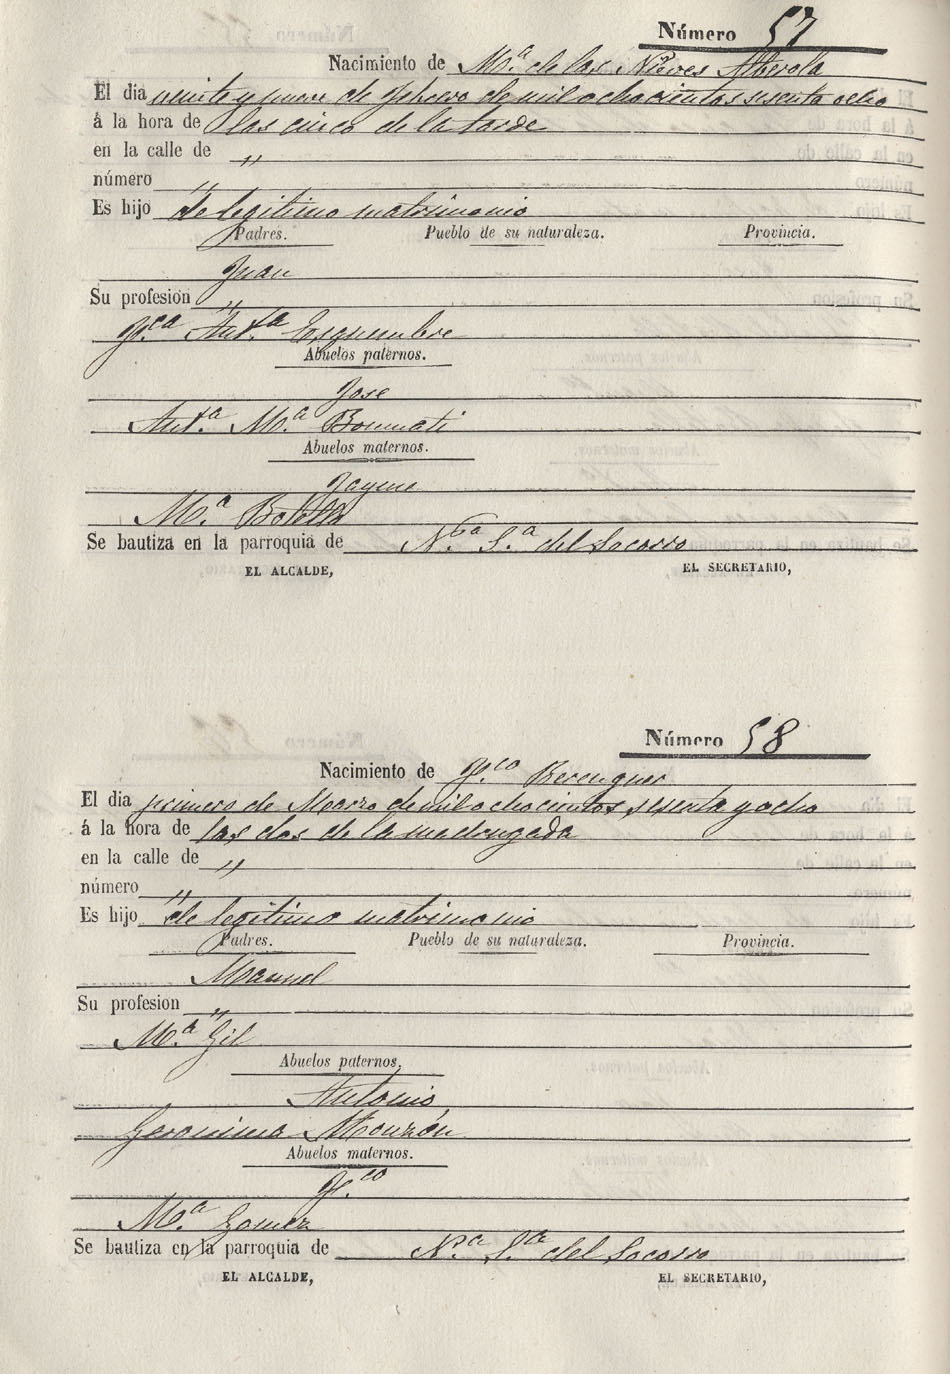 Número 57
Nacimiento de Mª de las Nieves Alberola
El dia veinte y nueve de febrero de mil ochocientos sesenta ocho
á la hora de las cinco de la tarde
en la calle de "
número "
Es hijo de legitimo matrimonio
Padres. Pueblo de su naturaleza. Provincia.
Juan
Su profesion "
Fca Anta Esquembre
Abuelos paternos.
Jose
Anta Mª Bonmati
Abuelos maternos.
Jayme
Mª Botella
Se bautiza en la parroquia de Nª Sª del Socorro
EL ALCALDE, EL SECRETARIO,
Número 58
Nacimiento de Fco Berenguer
El dia primero de Marzo de mil ochocientos sesenta y ocho
á la hora de las dos de la madrugada
en la calle de "
número "
Es hijo de legitimo matrimonio
Padres. Pueblo de su naturaleza. Provincia.
Manuel
Su profesion "
Mª Gil
Abuelos paternos,
Antonio
Geronima Monzón
Abuelos maternos.
Fco
Mª Gomez
Se bautiza en la parroquia de Nª Sª del Socorro
EL ALCALDE, EL SECRETARIO,